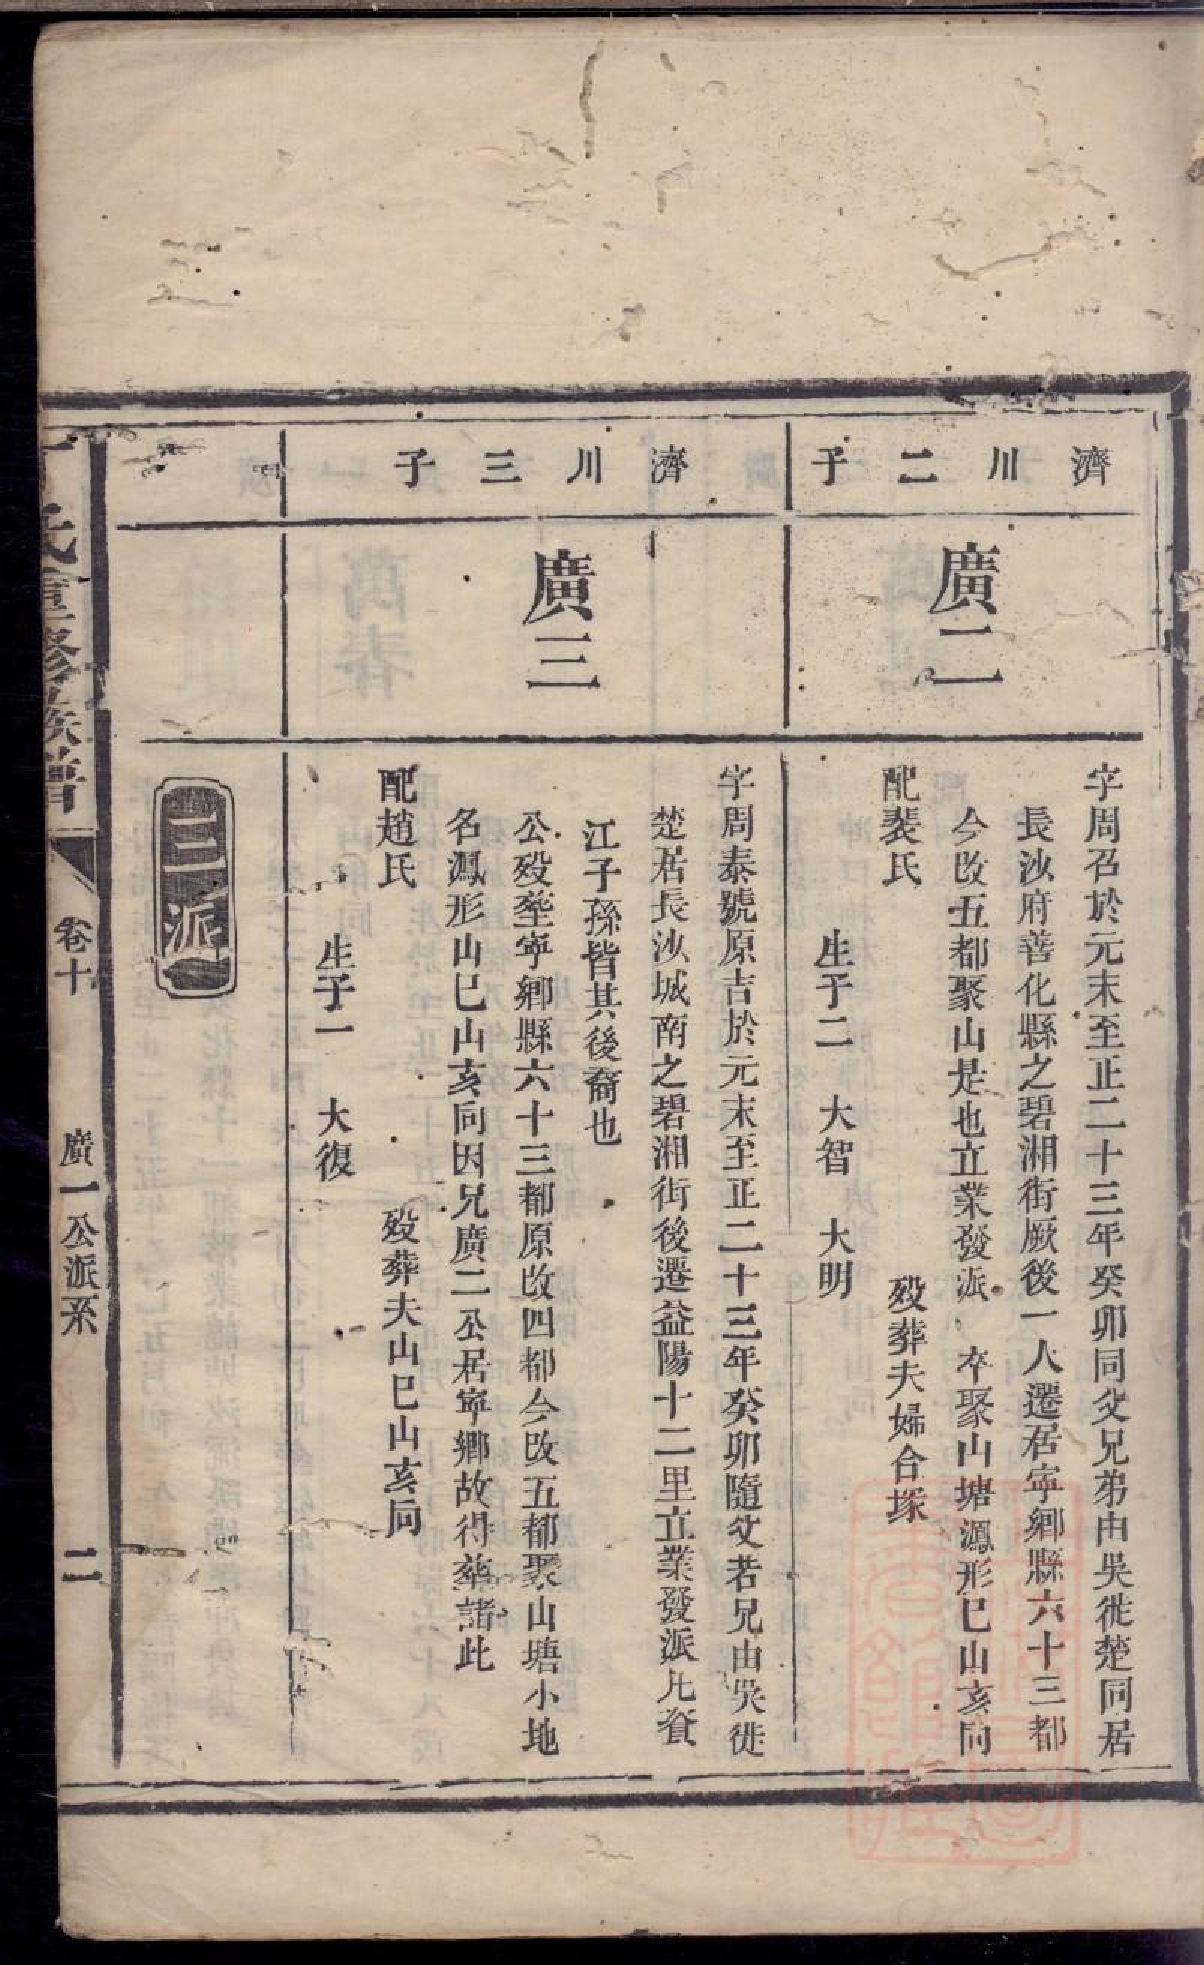 濟川二子
廣二
字周召於元末至正二十三年癸卯同父兄弟由吳徙楚同居
長沙府善化縣之碧湘街厥後一人遷居寧鄉縣六十三都
今改五都聚山是也立業發派 卒聚山塘鳳形巳山亥向
配裴氏 歿葬夫婦合塚
生子二 大智 大明
濟川三子
廣三
字周泰號原吉於元末至正二十三年癸卯隨父若兄由吳徙
楚居長沙城南之碧湘街後遷益陽十二里立業發派凡資
江子孫皆其後裔也
公歿塟寧鄉縣六十三都原改四都今改五都聚山塘小地
名鳳形山巳山亥向因兄廣二公居寧鄉故得塟諸此
配趙氏 歿葬夫山巳山亥向
生子一 大復
三派
氏重修族譜 卷十 廣一公派系 二